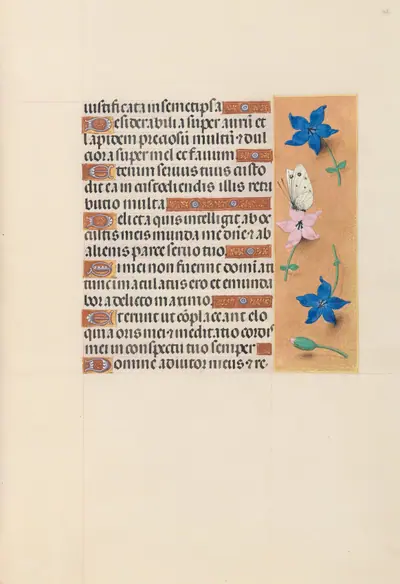 iustificata in semetipsa
Desiderabilia super aurũ et
lapidem preciosũ multũ ⁊ dul
ciora super mel et fauum
Etenim seruus tuus custo
dit ea in custodiendis illis retri
butio multa
Delicta quis intelligit ab oc
cultis meis munda me dñe ⁊ ab
alienis parce seruo tuo
Si mei non fuerint dom̃i tũ
tunc ĩmaculatus ero et emunda
bor a delicto maximo
Et erunt ut cõplaceant elo
quia oris mei ⁊ meditatio cordis
mei in conspectu tuo semper
Domine adiutor meus ⁊ re